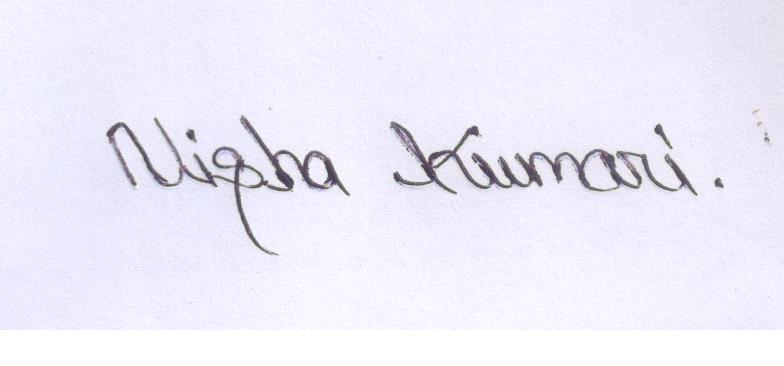 Nisha Kumari.